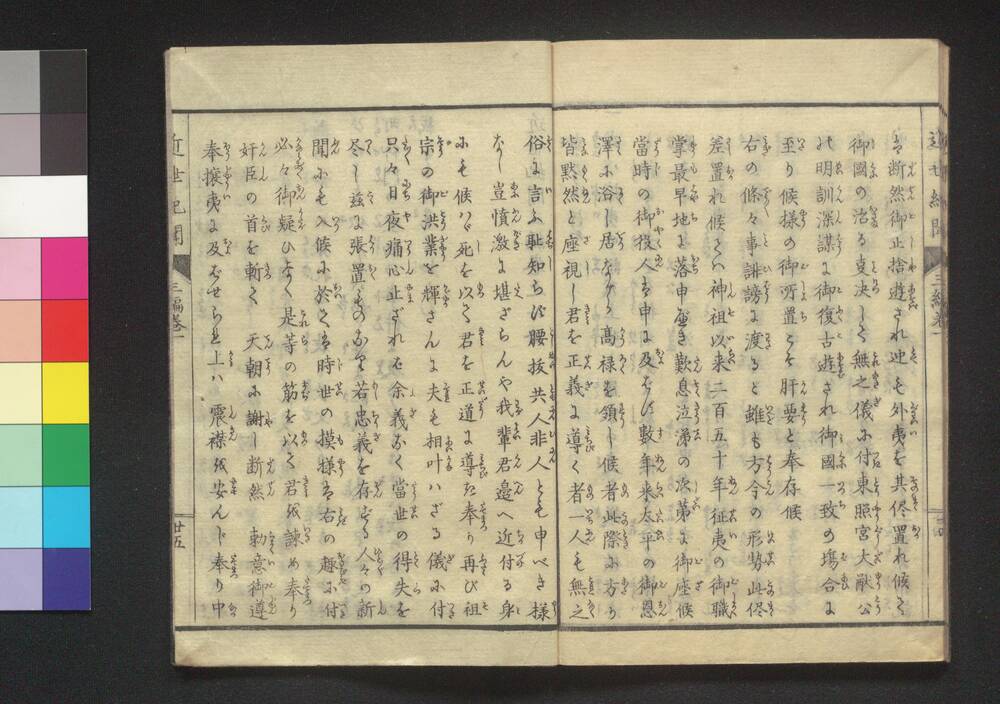 は断然御止捨遊され迚も外夷を其侭置れ候て
御國の治る事決して無之儀に付東照宮大猷公
の明訓深謀に御復古遊され御國一致の塲合に
至り候様の御所置こそ肝要と奉存候
右の條々事誹謗に渡ると雖も方今の形勢此侭
差置れ候ては神祖以来二百五十年征夷の御職
掌最早地に落申べき歎息泣涕の次第に御座候
當時の御役人は申に及ばず數年来太平の御恩
澤に浴し居ながら高禄を領し候者此際に方り
皆黙然と座視し君を正義に導く者一人も無之
俗に言ふ恥知らず腰抜共人非人とも申べき様
なし豈憤激に堪ざらんや我輩君邉へ近付る身
にも候はゞ死を以て君を正道に導き奉り再び祖
宗の御洪業を輝さんに夫も相叶ハざる儀に付
只々日夜痛心止ざれど余義なく當世の得失を
尽し茲に張置ものなり若忠義を存ずる人々の新
聞にも入候に於ては時世の摸様は右の趣に付
必々御疑ひなく是等の筋を以て君を諌め奉り
奸臣の首を斬て 天朝に謝し断然 勅意御遵
奉攘夷に及ばせらるれ上ハ 震襟を安んじ奉り中
近世紀聞 三編巻一 廿五